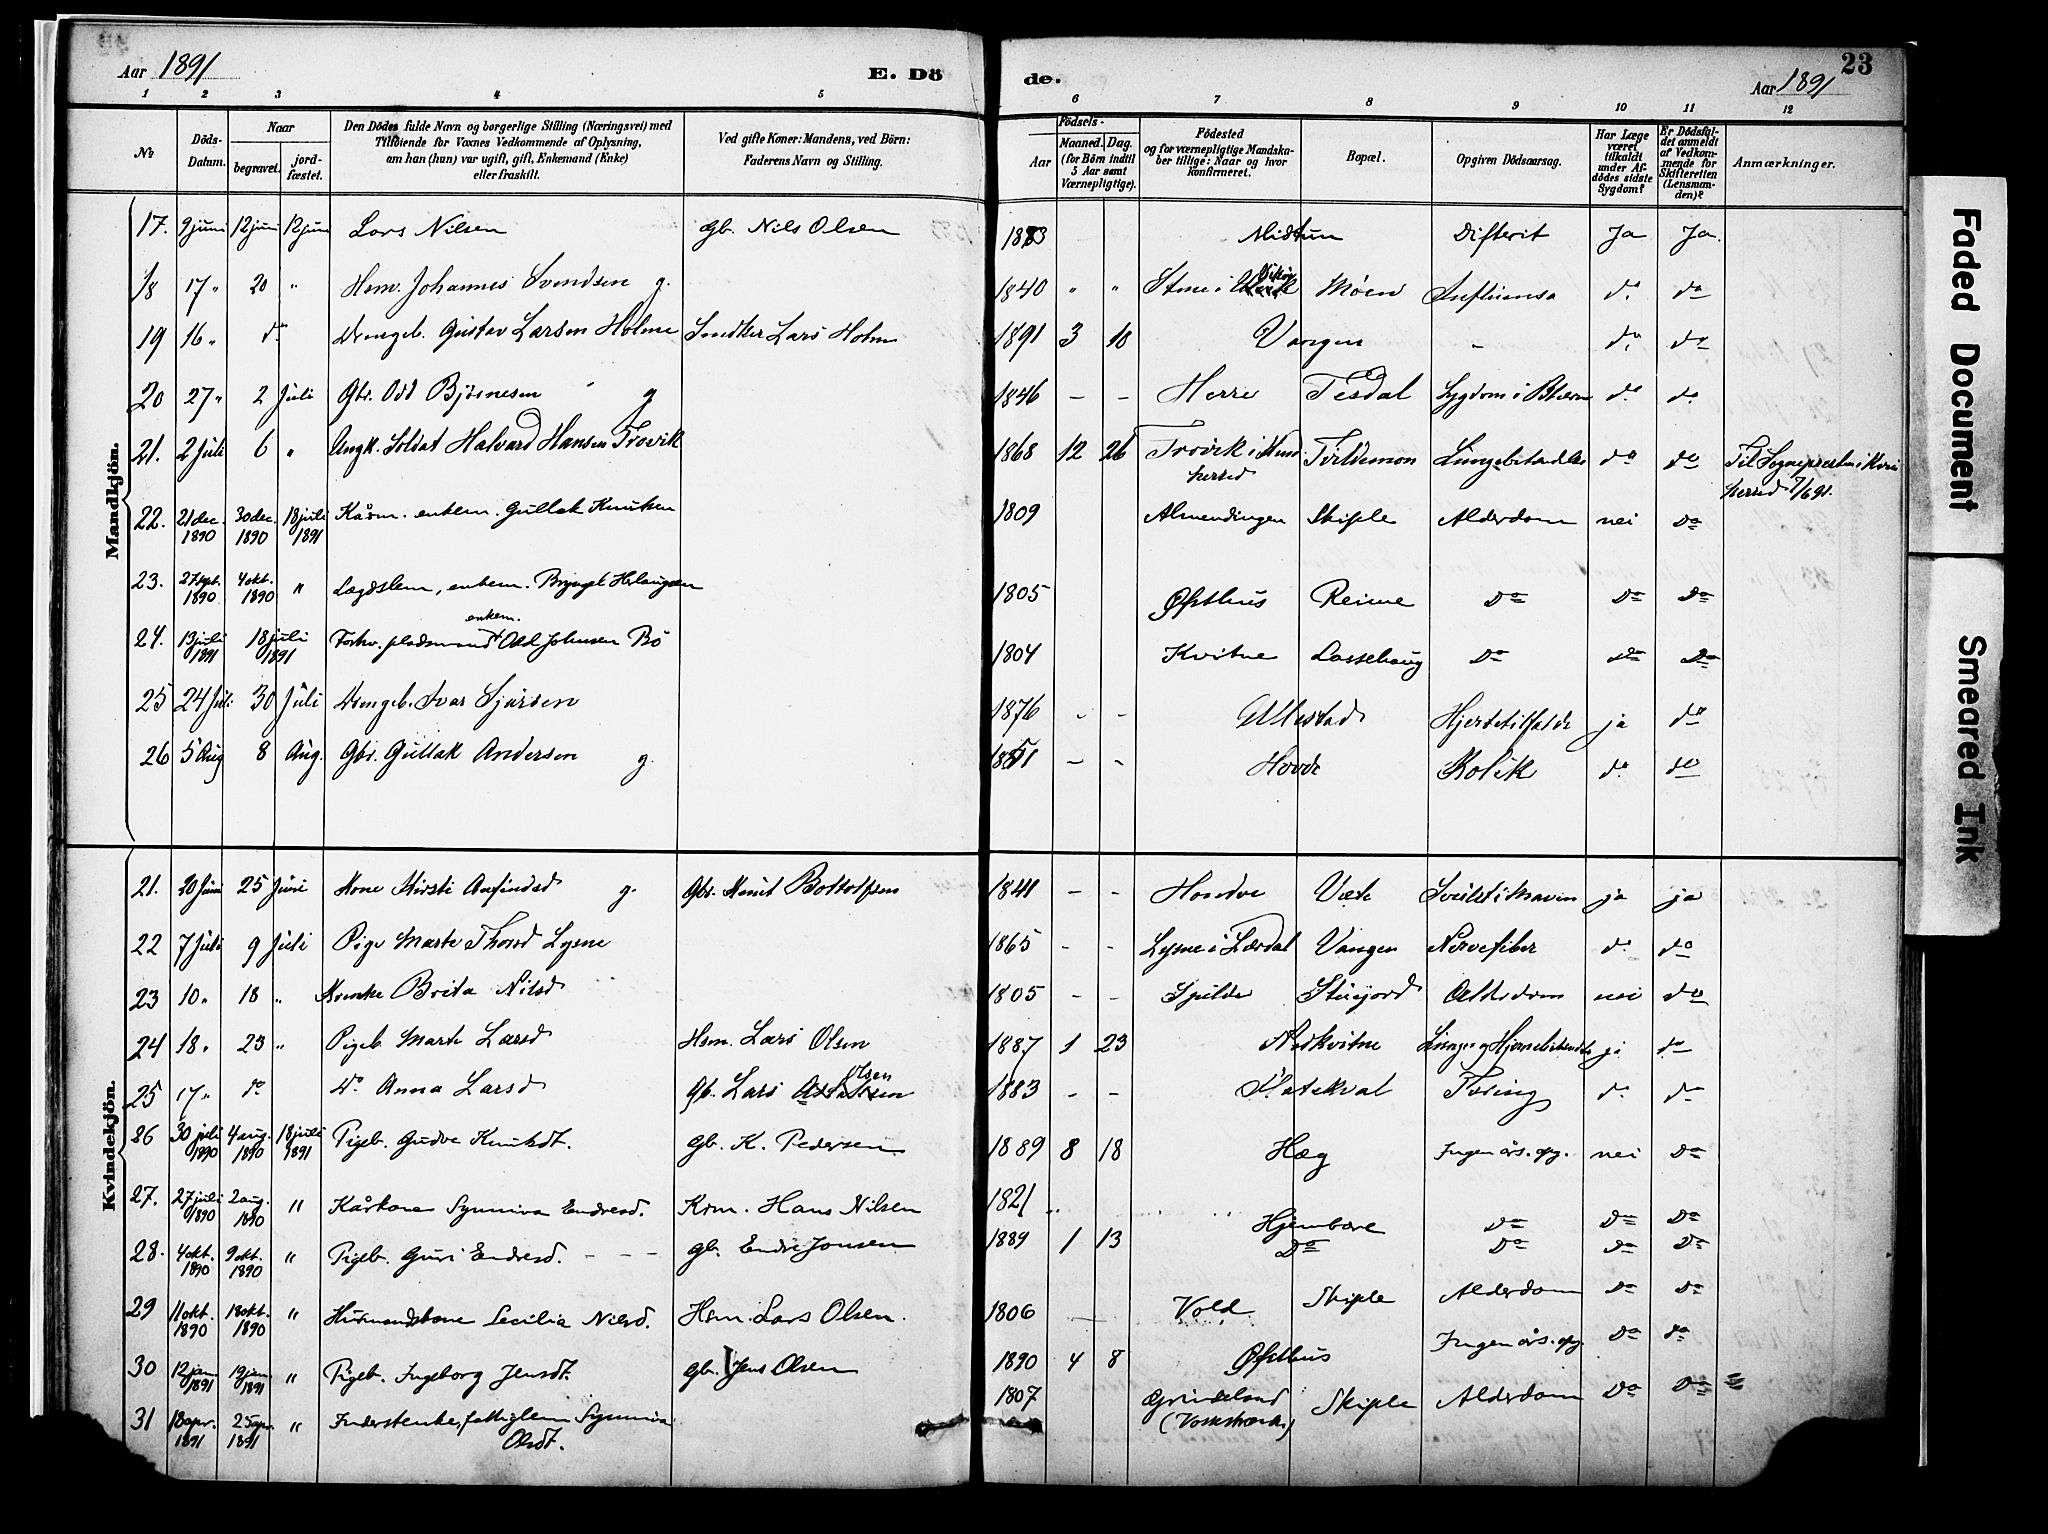 Aar 1891 E. Dö de. Aar 1891 23
1 2 3 4 5 6 7 8 9 10 11 12
№ Döds-Datum. Naar begravet. jordfæstet. Den Dödes fulde Navn og borgerlige Stilling (Næringsvei) med Tilföiende for Voxnes Vedkommende af Oplysning, om han (hun) var ugift, gift, Enkemand (Enke) eller fraskilt. Ved gifte Koner: Mandens, ved Börn: Faderens Navn og Stilling. Födsels- Aar Maaned. Dag. (for Börn indtil 5 Aar samt Værnepligtige). Födested og for værnepligtige Mandskaber tillige: Naar og hvor konfirmeret. Bopæl. Opgiven Dödsaarsag. Har Læge været tilkaldt under Afdödes sidste Sygdom? Er Dödsfaldet anmeldt af Vedkommende for Skifteretten (Lensmanden)? Anmærkninger.
Mandkjön.
17. 9 juni 12 juni 12 juni Lars Nilsen gb. Nils Olsen 1883 Midtun Difterit Ja Ja.
18 17 " 20 " Hsm. Johannes Svendsen g. 1840 " " Stene i Vikör Møen Influensa do do
19 16 " do Drengeb. Gustav Larsen Holme Snedker Lars Holm 1891 3 18 Vangen - do do
20 27 " 2 Juli Gbr. Odd Björnesen g 1846 - - Herre Tesdal Sygdom i Blæren do do
21. 2 Juli 6 " Ungk. Soldat Halvard Hansen Trovik 1868 12 26 Trovik i Kvindherred Tvildemon Lungebetændelse do do Til Sognepresten i Kvinherred 7/6 91.
22. 21 dec. 1890 30 dec. 1890 18 juli 1891 Kårm. enkem. Gullak Knutsen 1809 Almendingen Skiple Alderdom nei do
23. 27 sept. 1890 4 okt. 1890 " Lægdslem, enkem. Brynjel Helauger 1805 Østhus Reime do do do
24. 13 juli 1891 18 juli 1891 Forhv. pladsmand enkem. Odd Johnsen Bö 1804 Kvitne Lassehaug do do do
25 24 Juli 30 Juli Drengeb. Ivar Sjursen 1876 - - Ullestad Hjertetilfælde ja do
26 5 Aug 8 Aug. Gbr. Gullak Andersen g. 1851 - - Hovde Kolik do do
Kvindekjön.
21. 20 Juni 25 Juni Kone Kirsti Anfindsd g. Gbr. Knut Bottolfsen 1841 - - Hondve Væte Sveilst i Maven ja ja
22 7 Juli 9 Juli Pige Marte Thorsd Lysne 1865 - - Lysne i Lærdal Vangen Nervefeber do do
23 10 " 18 " Kvinke Brita Nilsd 1805 - - Spilde Stuejord Alderdom nei do
24 18 " 23 " Pigeb. Marte Larsd Hsm. Lars Olsen 1887 1 23 Nedkvitne Lunge og Hjernebetændelse ja do
25 17 " do " Do Anna Larsd Gb. Lars Olsen 1883 - - Flatekval Tæring do do
26 30 juli 1890 4 aug. 1890 18 juli 1891 Pigeb. Gudve Knutsdt. gb. K. Pedersen 1889 8 18 Hæg Ingen års. opg. nei do
27. 27 juli 1890 2 aug. 1890 " Kårkone Synniva Endresd. Krm. Hans Nilsen 1821 " Hjembære do do do
28. 4 okt. 1890 9 okt. 1890 " Pigeb. Guri Endresd. - - - gb. Endre Jonsen 1889 1 13 do do do do
29 11 okt. 1890 18 okt. 1890 " Husmandskone Cecilia Nilsd. Hsm. Lars Olsen. 1806 - Vold Skiple Alderdom do do
30 12 jan. 1891 19 jan. 1891 " Pigeb. Ingeborg Jensdt. gb. Jens Olsen 1890 4 8 Østhus Ingen års. opg do do
31 18 apr. 1891 25 apr. 1891 " Inderstenke, fattiglem Synniva Olsdt. 1807 Grindeland (Vossestrand) Skiple Alderdom do do
Faded Document
Smeared Ink